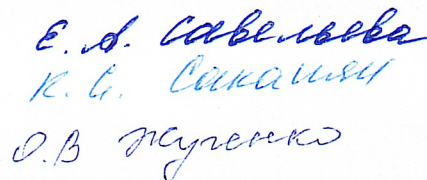 Е. А. Савельева
К. С. Саканян
О.В Жученко